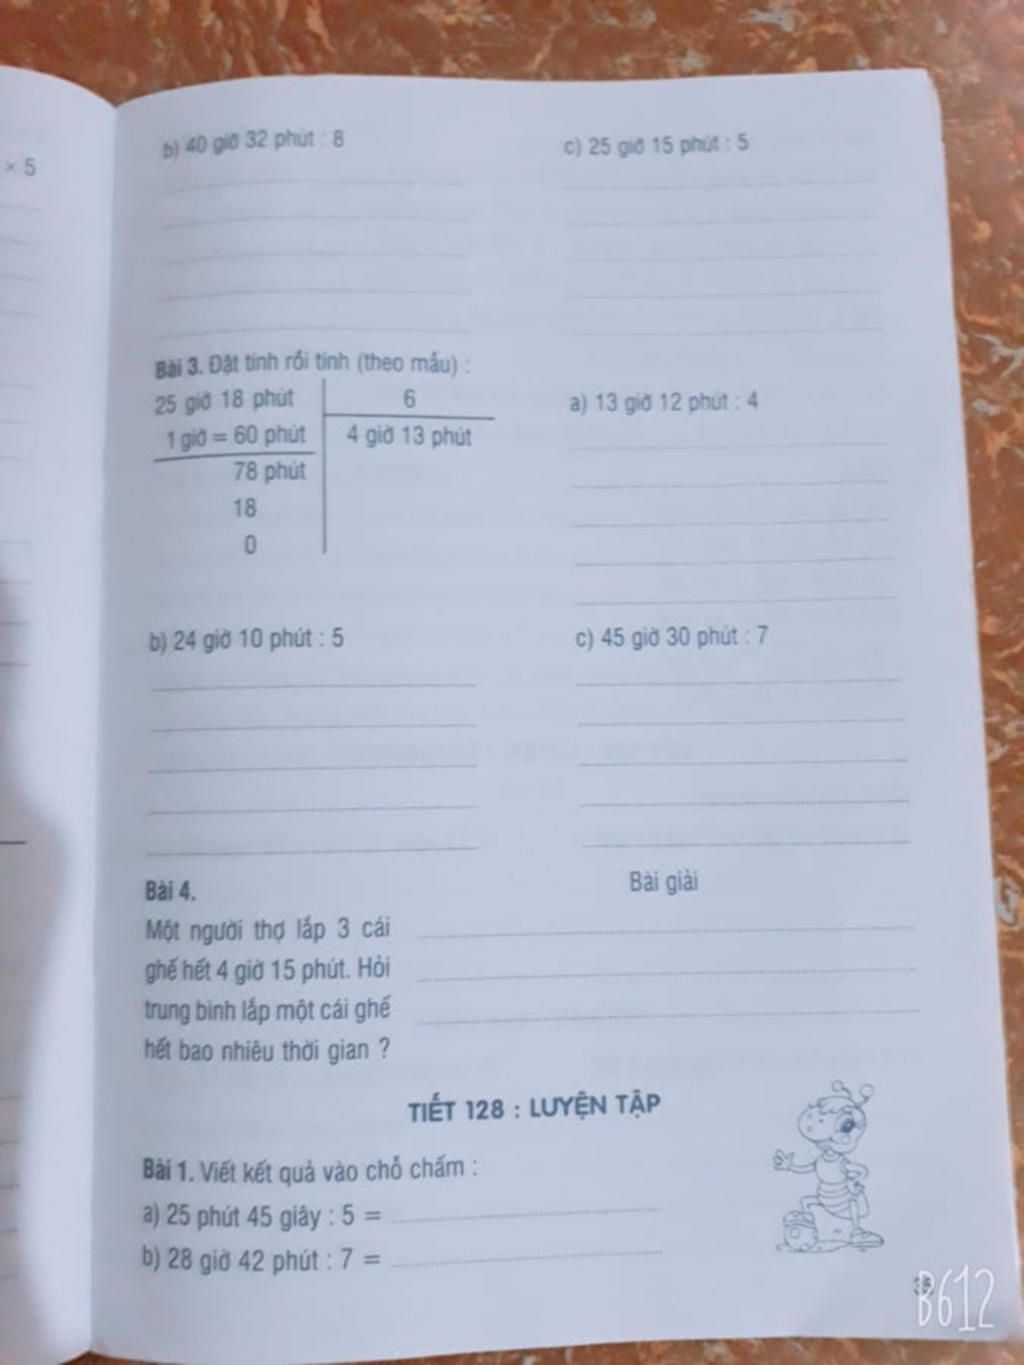 × 5
b) 40 giờ 32 phút : 8
c) 25 giờ 15 phút : 5
Bài 3. Đặt tính rồi tính (theo mẫu) :
25 giờ 18 phút
6
1 giờ = 60 phút
4 giờ 13 phút
78 phút
18
0
a) 13 giờ 12 phút : 4
b) 24 giờ 10 phút : 5
c) 45 giờ 30 phút : 7
Bài 4.
Bài giải
Một người thợ lắp 3 cái
ghế hết 4 giờ 15 phút. Hỏi
trung bình lắp một cái ghế
hết bao nhiêu thời gian ?
TIẾT 128 : LUYỆN TẬP
Bài 1. Viết kết quả vào chỗ chấm :
a) 25 phút 45 giây : 5 =
b) 28 giờ 42 phút : 7 =
B612